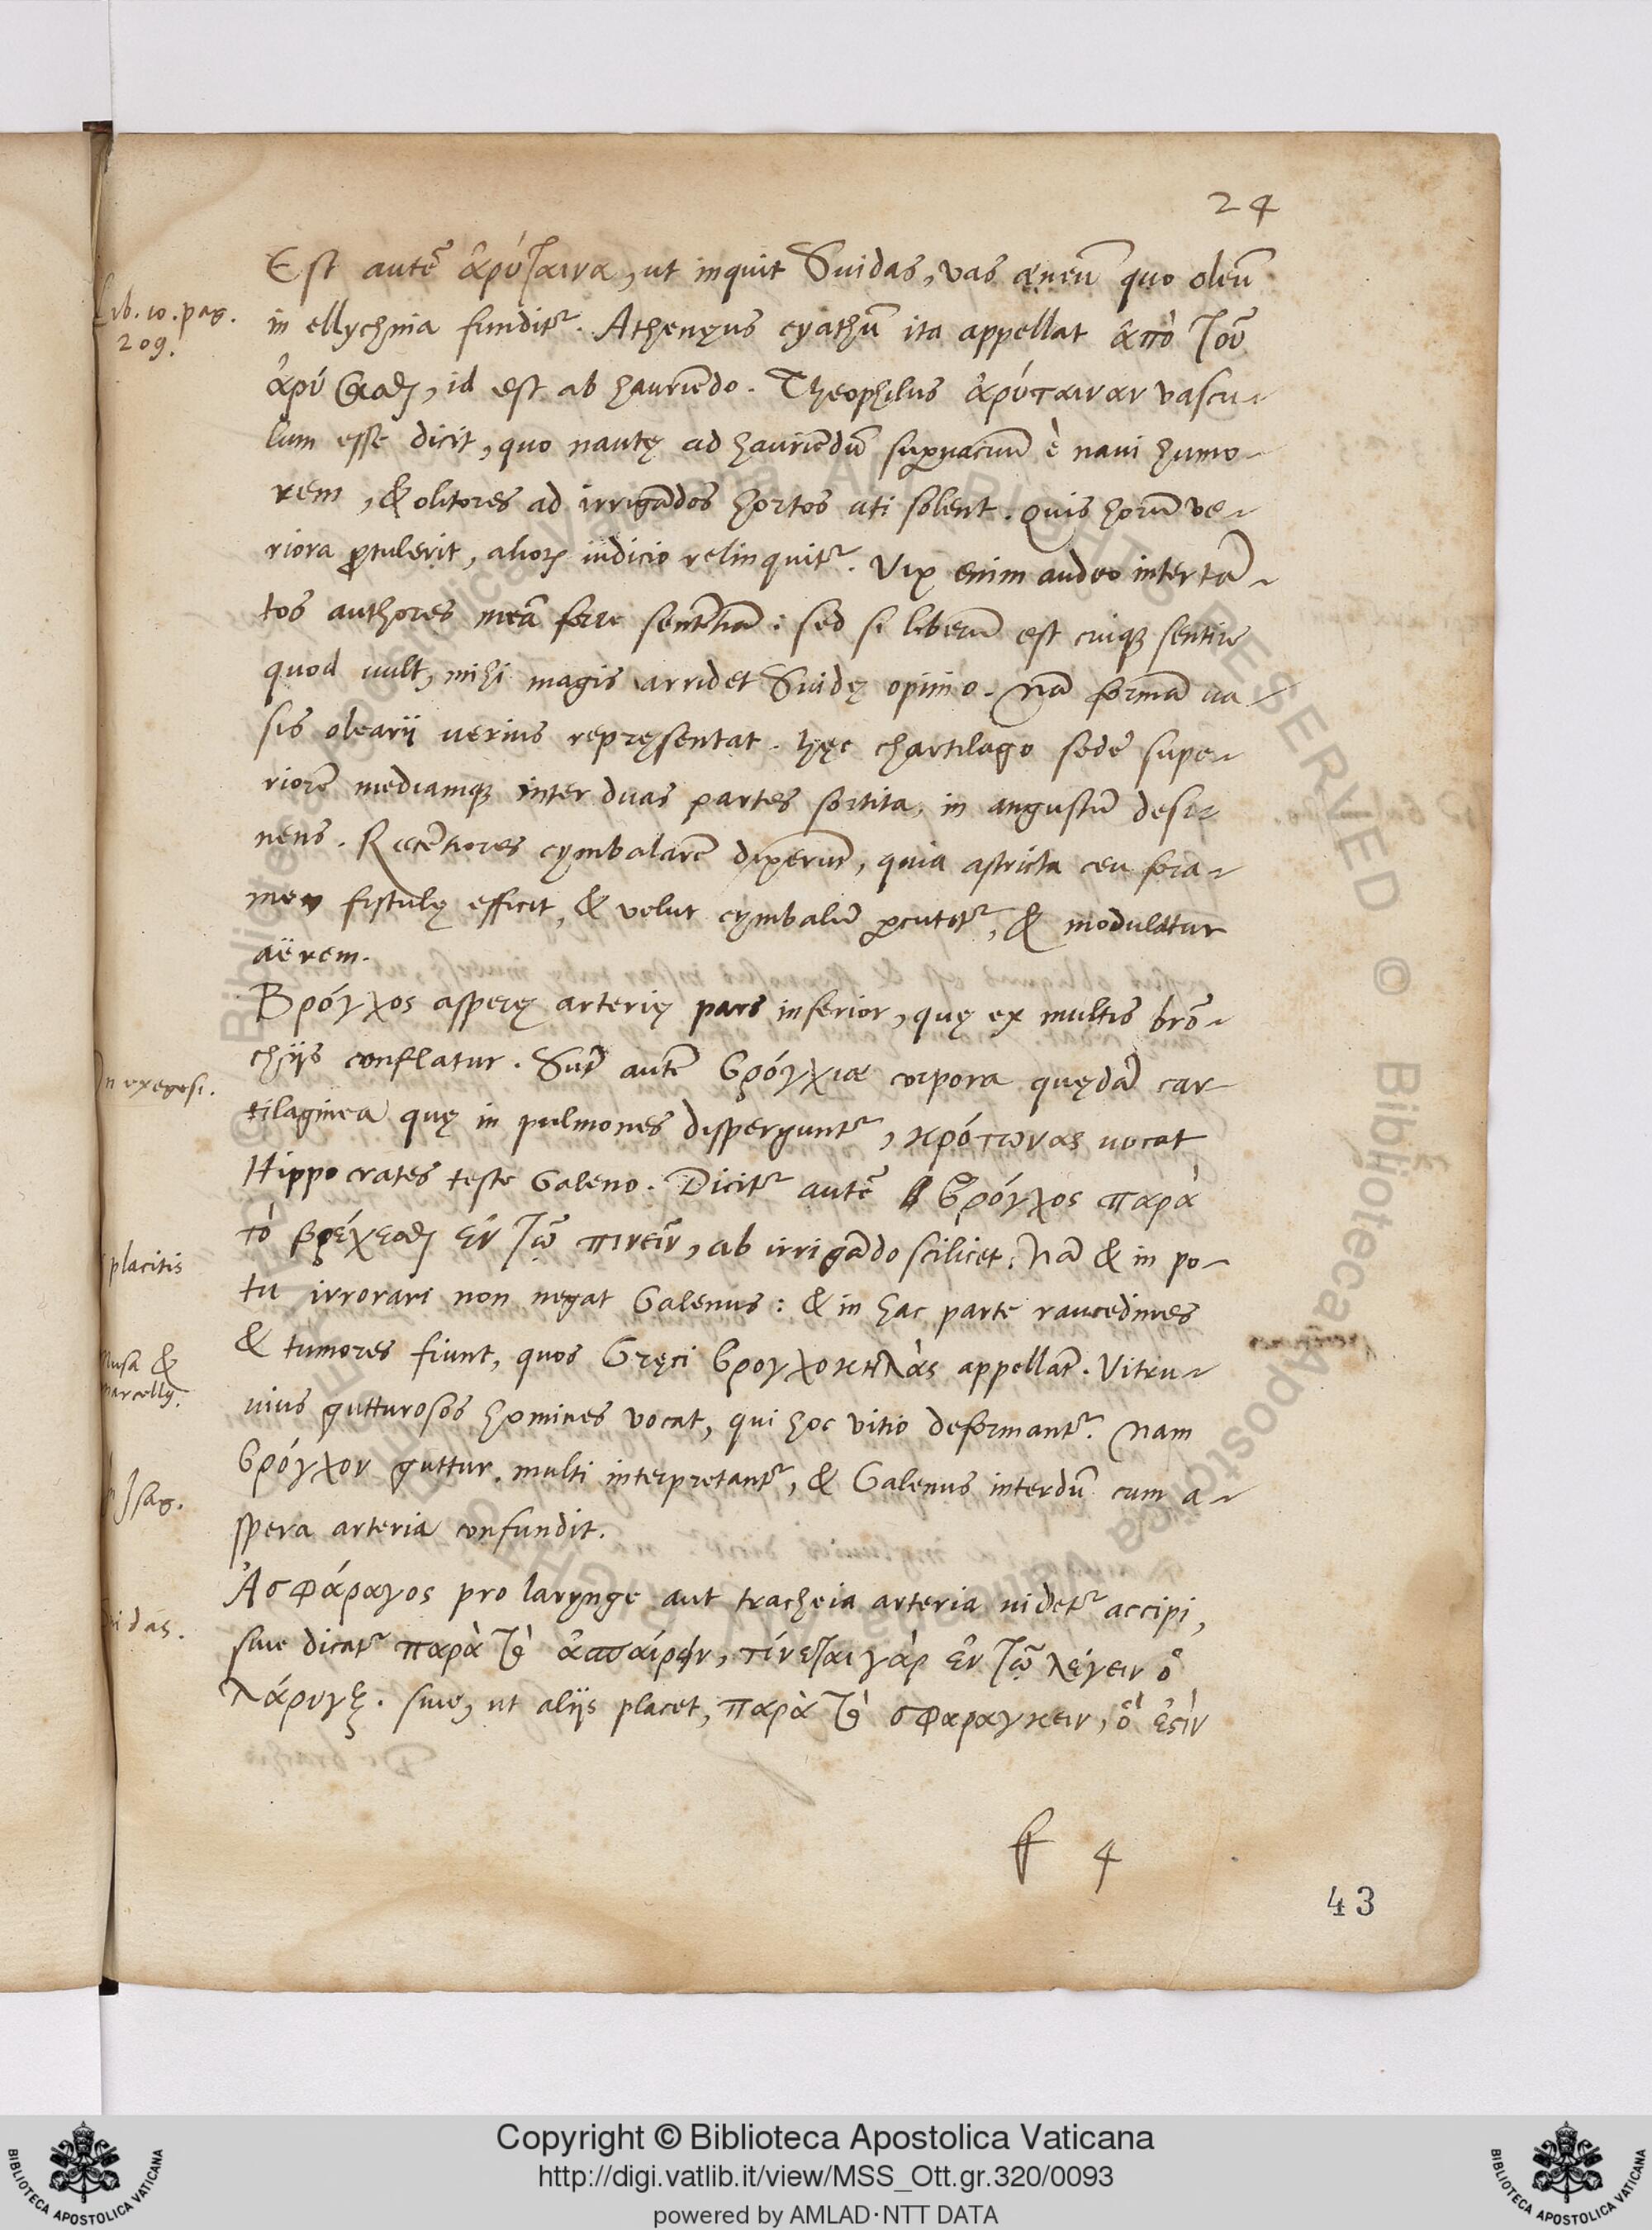 24
Est autē ἀρύταινα, ut inquit Suidas, vas ęneū quo oleū
Lib. 10. pag.
209.
in ellychnia funditr. Athenęus cyathū ita appellat ἀπὸ τοῦ
ἀρύσαϑαι, id est ab hauriēdo. Theophilus ἀρύταιναν vascu-
lum esse dicit, quo nautę ad hauriēdū supvacuū è navi humo-
rem, & olitores ad irrigādos hortos uti solent. Quis horū ve-
riora ptulerit, alioꝝ iudicio relinquitr. Vix enim audeo inter tā-
tos authores meā ferre sentētiā: sed si liberū est cuiqȝ sentire
quod vult, mihi magis arridet Suidę opinio. Nā formā va-
sis olearij uerius repręsentat. Hęc chartilago sedē supe-
riorē mediamqȝ inter duas partes sortita, in angustū desi-
nens. Recētiores cymbalarē dixerūt, quia astricta ceu fora-
men fistulę efficit, & velut cymbalū pcutitr, & modulatur
aërem.
Βρόγχος asperę arterię pars inferior, quę ex multis brō-
chijs conflatur. Sūt autē βρόγχια corpora quędā car-
In exegesi.
tilaginea quę in pulmones disperguntr, κρότωνας uocat
Hippocrates teste Galeno. Dicitr autē βρόγχος παρὰ
τὸ βρέχεϑαι ἐν τῶ πινεῖν, ab irrigādo scilicet. Nā & in po-
placitis
tu irrorari non negat Galenus: & in hac parte raucedines
& tumores fiunt, quos Gręci βρογχοκηλὰς appellāt. Vitru-
Musa &
Marcellq.
uius gutturosos homines vocat, qui hoc vitio deformantr. Nam
βρόγχον guttur multi interpretantr, & Galenus interdū cum a-
Isag.
spera arteria confundit.
Ἀσφάραγος pro larynge aut tracheia arteria uidetr accipi,
Suidas.
siue dicatr παρὰ τὸ ἀσπαίρειν, τίνεται γάρ ἐν τῶ λέγειν ὁ
λάρυγξ. siue, ut alijs placet, παρὰ τὸ σφαραγκειν, ὅ ἐςὶν
f 4
43
© Biblioteca Apostolica Vaticana ALL RIGHTS RESERVED
Copyright © Biblioteca Apostolica Vaticana
http://digi.vatlib.it/view/MSS_Ott.gr.320/0093
powered by AMLAD·NTT DATA
BIBLIOTECA APOSTOLICA VATICANA
BIBLIOTECA APOSTOLICA VATICANA